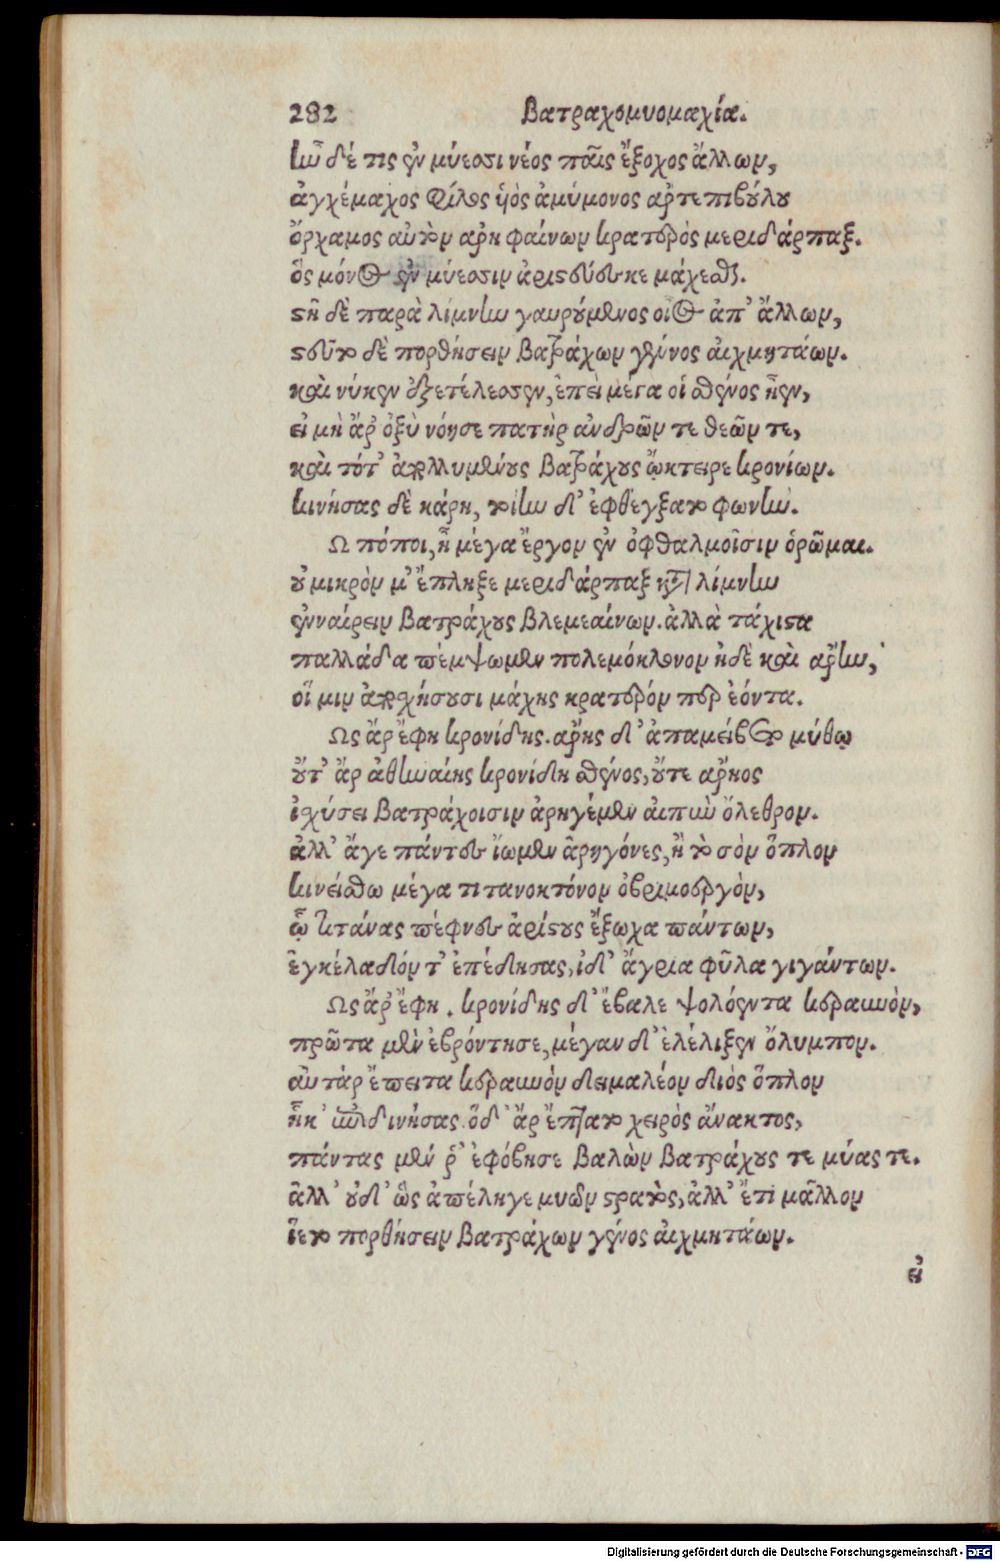 282 Βατραχομυομαχία.
ἦν δέ τις ἐν μύεσσι νέος παῖς ἔξοχος ἄλλων,
ἀγχέμαχος φίλος ὑὸς ἀμύμονος ἀρτεπιβούλου
ὄρχαμος αὐτὸν ἄρη φαίνων κρατερὸς μεριδάρπαξ.
ὃς μόνος ἐν μύεσσιν ἀριστεύεσκε μάχεσθαι.
στῆ δὲ παρὰ λίμνην γαυρούμενος οἶος ἀπ' ἄλλων,
στεῦτο δὲ πορθήσειν βατράχων γένος αἰχμητάων.
καὶ νύκεν ἐξετέλεσσεν, ἐπεὶ μέγα οἱ σθένος ἦεν,
εἰ μὴ ἄρ' ὀξὺ νόησε πατὴρ ἀνδρῶν τε θεῶν τε,
καὶ τότ' ἀπολλυμένους βατράχους ᾤκτειρε κρονίων.
κινήσας δὲ κάρη, τοίην δ' ἐφθέγξατο φωνήν.
Ω πόποι, ἦ μέγα ἔργον ἐν ὀφθαλμοῖσιν ὁρῶμαι.
οὐ μικρὸν μ' ἔπληξε μεριδάρπαξ κατὰ λίμνην
ἐνναίρειν βατράχους βλεμεαίνων. ἀλλὰ τάχιστα
παλλάδα πέμψωμεν πολεμόκλονον ἠδὲ καὶ ἄρην,
οἵ μιν ἀποσχήσουσι μάχης κρατερόν περ ἐόντα.
Ως ἄρ ἔφη κρονίδης. ἄρης δ' ἀπαμείβετο μύθῳ
οὔτ' ἄρ ἀθηναίης κρονίδη σθένος, οὔτε ἄρηος
ἰσχύσει βατράχοισιν ἀρηγέμεν αἰπὺν ὄλεθρον.
ἀλλ' ἄγε πάντες ἴωμεν ἀρηγόνες, ἢ τὸ σὸν ὅπλον
κινείσθω μέγα τιτανοκτόνον ὀβριμοεργὸν,
ᾧ τιτάνας πέφνες ἀρίστους ἔξοχα πάντων,
ἐγκέλαδόν τ' ἐπέδησας, ἰδ' ἄγρια φῦλα γιγάντων.
Ως ἄρ' ἔφη. κρονίδης δ' ἔβαλε ψολόεντα κεραυνὸν,
πρῶτα μὲν ἐβρόντησε, μέγαν δ' ἐλέλιξεν ὄλυμπον.
αὐτὰρ ἔπειτα κεραυνὸν δειμαλέον διὸς ὅπλον
ἧκ' ἐπιδινήσας. ὅδ' ἄρ ἔπτατο χειρὸς ἄνακτος,
πάντας μέν ῥ' ἐφόβησε βαλὼν βατράχους τε μύας τε.
ἀλλ' οὐδ' ὣς ἀπέληγε μυῶν στρατὸς, ἀλλ' ἔτι μᾶλλον
ἵετο πορθήσειν βατράχων γένος αἰχμητάων.
εἰ
Digitalisierung gefördert durch die Deutsche Forschungsgemeinschaft - DFG